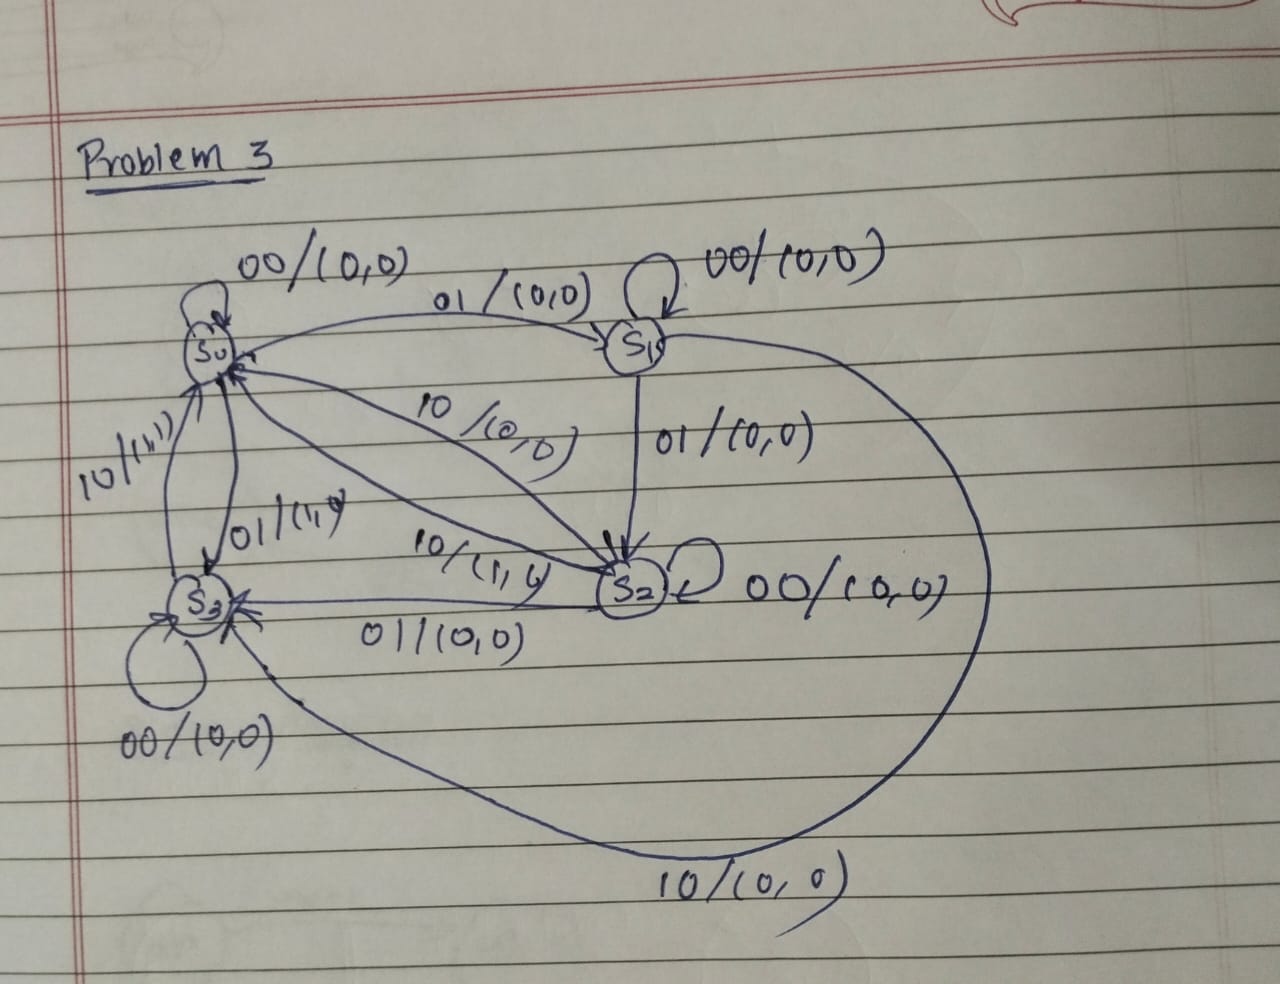 Problem 3
00/(0,0)
00/(0,0)
01/(0,0)
S0
S1
10/(0,0)
01/(0,0)
10/(1,1)
01/(1,
10/(1,
S2
00/(0,0)
S3
01/(0,0)
00/(0,0)
10/(0,0)